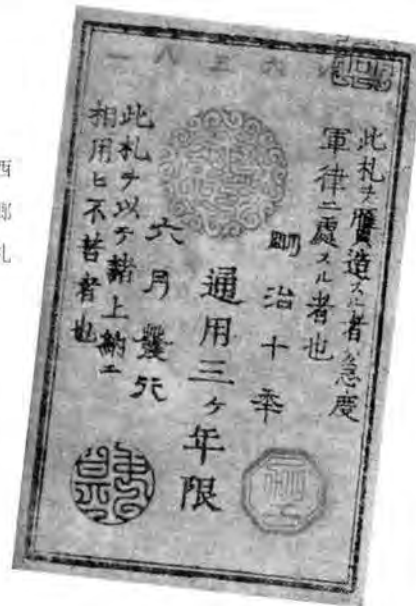 西郷札
一八五六
此札ヲ贋造スル者ハ急度
軍律ニ處スル者也
明治十季
通用三ヶ年限
六月發行
此札ヲ以テ諸上納ニ
相用ヒ不苦者也